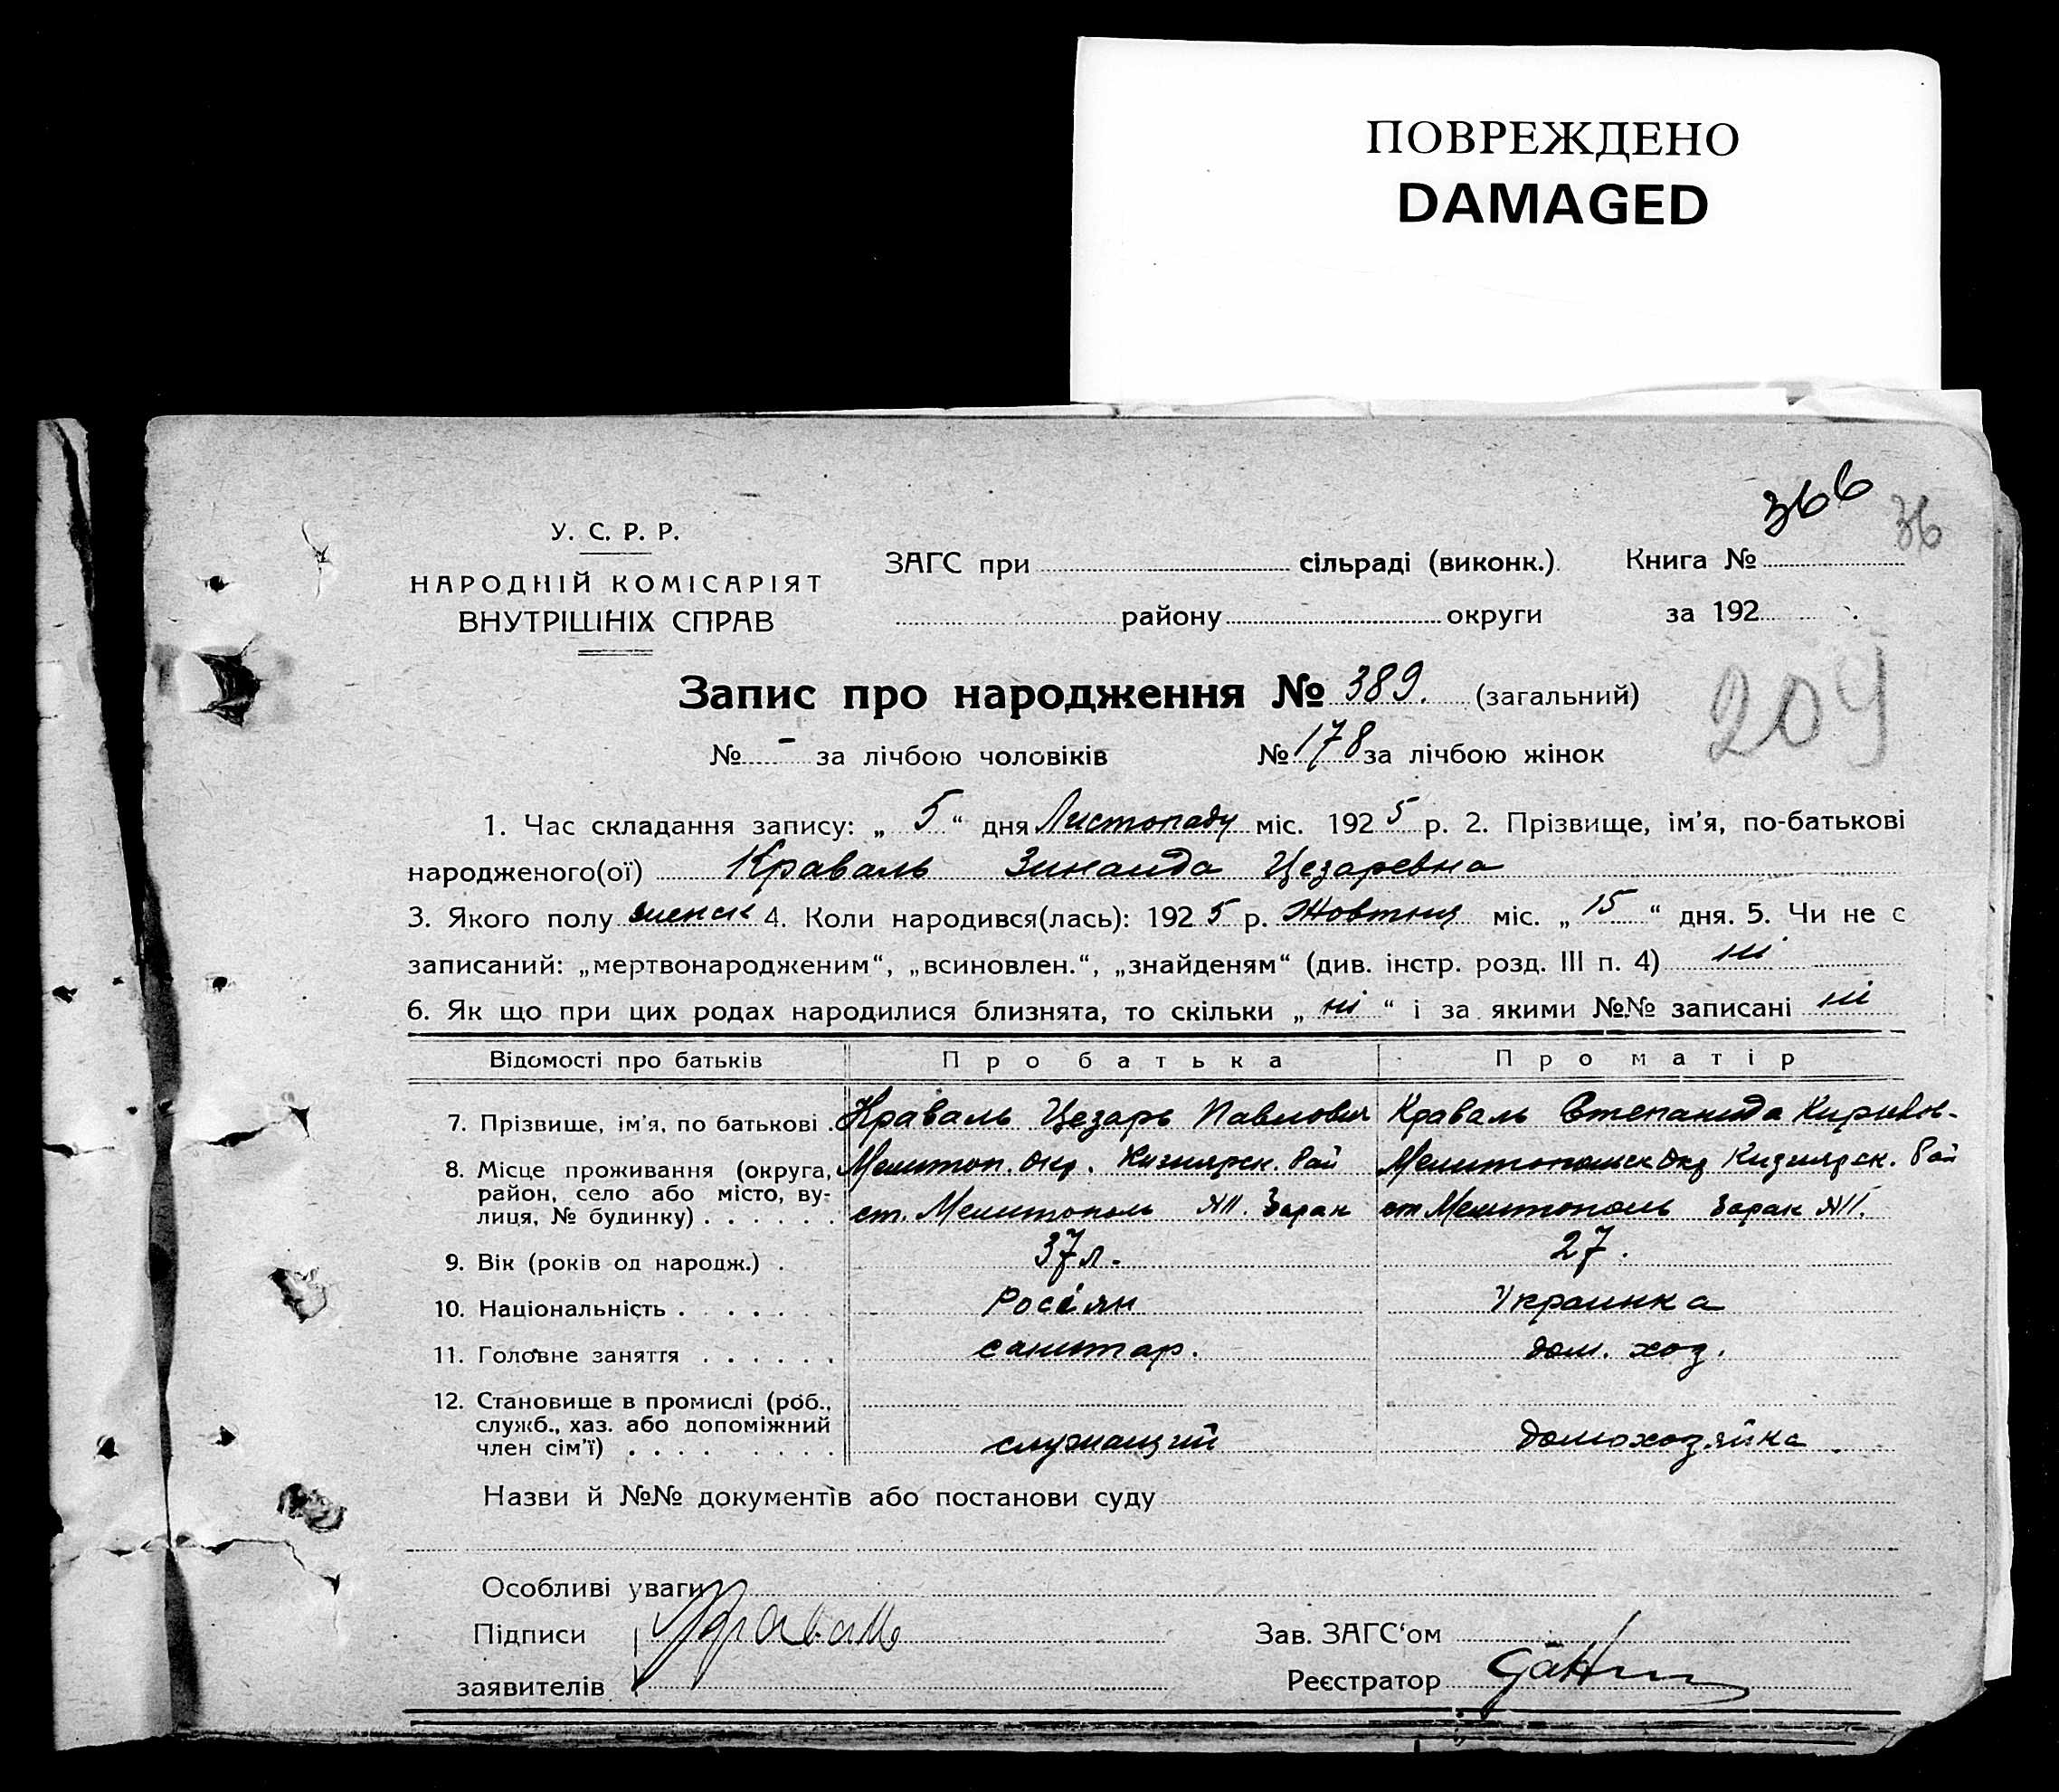 ПОВРЕЖДЕНО
DAMAGED
366
36
У. С. Р. Р.
НАРОДНІЙ КОМІСАРІЯТ
ВНУТРІШНІХ СПРАВ
ЗАГС при сільраді (виконк.). Книга №
району округи за 192
Запис про народження № 389. (загальний)
209
№ - за лічбою чоловіків № 178 за лічбою жінок
1. Час складання запису: „ 5 “ дня Листопаду міс. 192 5 р. 2. Прізвище, ім'я, по-батькові
народженого(ої) Краваль Зинаида Цезаревна
3. Якого полу женск 4. Коли народився(лась): 192 5 р. Жовтня міс. „ 15 “ дня. 5. Чи не є
записаний: „мертвонародженим“, „всиновлен.“, „знайденям“ (див. інстр. розд. III п. 4) ні
6. Як що при цих родах народилися близнята, то скільки „ ні “ і за якими №№ записані ні
Відомості про батьків Про батька Про матір
7. Прізвище, ім'я, по батькові Краваль Цезарь Павлович Краваль Степанида
8. Місце проживання (округа, Мелитоп. окр. Кизиярск. Рай Мелитопольск окр Кизиярск. Рай
район, село або місто, ву-
лиця, № будинку) ст. Мелитополь барак ст Мелитополь барак
9. Вік (років од народж.) 37 л. 27.
10. Національність Росіян Украинка
11. Головне заняття санитар. дом. хоз.
12. Становище в промислі (роб.,
служб., хаз. або допоміжний
член сім'ї) служащий домохозяйка
Назви й №№ документів або постанови суду
Особливі уваги
Підписи Краваль Зав. ЗАГС'ом
заявителів Реєстратор